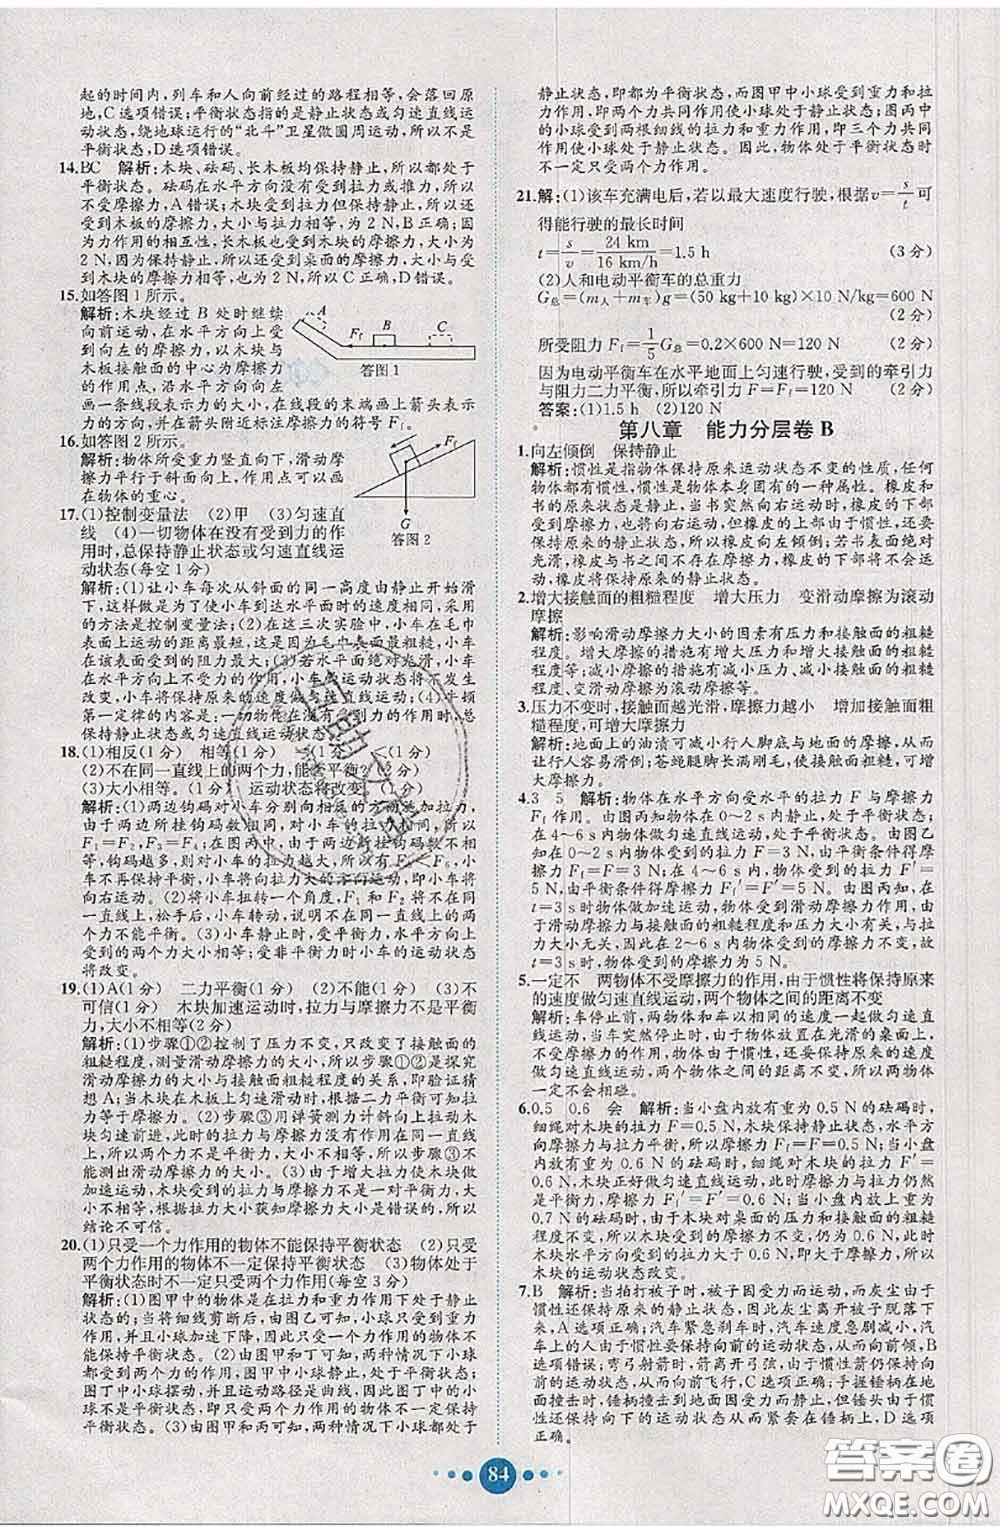 起的时间内,列车和人向前经过的路程相等,会落回原
地,C选项错误;平衡状态是指的是静止或匀速直线运
动状态,绕地球运行的“北斗”卫星做圆周运动,所以不是
平衡状态,D选项错误。
14.BC 解析:木块、砝码、长木板均保持静止,所以都处于
平衡状态。砝码在水平方向没有受到拉力或推力,所以
不受摩擦力,A错误;木块受到拉力但保持静止,所以还
受到木板的摩擦力,大小与拉力相等,为2 N,B正确;因
为力作用的相互性,长木板也受到木块的摩擦力,大小为
2 N,因为也保持静止,所以还受到桌面的摩擦力,大小与
受到木块的摩擦力相等,也为2 N,所以C正确,D错误。
15.如答图1所示。
解析:木块经过B处时继续
向前运动,在水平方向上受
到向左的摩擦力,以木块与
木板接触面的中心为摩擦力
的作用点,沿水平方向向左
画一条线段表示力的大小,在线段的末端画上箭头表示
力的方向,并在箭头附近标注摩擦力的符号Ff。
A
Ff
B
C
答图1
16.如答图2所示。
解析:物体所受重力竖直向下,滑动摩
擦力平行于斜面向上,作用点可以画
在物体的重心。
Ff
G
答图2
17.(1)控制变量法 (2)甲 (3)匀速直
线 (4)一切物体在没有受到力的作
用时,总保持静止状态或匀速直线运
动状态(每空1分)
解析:(1)让小车每次从斜面的同一高度由静止开始滑
下,这样做是为了使小车到达水平面时的速度相同,采用
的方法是控制变量法;(2)在这三次实验中,小车在毛巾
表面上运动的距离最短,这是因为毛巾表面最粗糙,小车
在该表面受到的阻力最大;(3)若水平面绝对光滑,小车
在水平面上将不受摩擦力的作用,其运动状态将不发生
改变,小车将保持原来的速度做匀速直线运动;(4)牛顿
第一定律的内容是:一切物体在没有受到力的作用时,总
保持静止状态或匀速直线运动状态。
18.(1)相反(1分) 相等(1分) =(1分) <(1分)
(2)不在同一直线上的两个力,能否平衡?(2分)
(3)大小相等。(1分) 运动状态将改变。(1分)
解析:(1)两边钩码对小车分别向相反的方向施加拉力,
由于两边所挂钩码数相同,对小车的拉力相等,所以
F1=F2,F3=F4;在图乙中,由于两边所挂钩码数不相
等,钩码越多,则对小车的拉力越大,所以有F1<F6,小
车不能平衡,小车将向拉力大的方向运动,即小车将向
右运动。(2)将小车扭转一个角度,F1和F2不在同一直
线上,松手后,小车转动,说明不在同一直线上的两
个力不能平衡。(3)小车静止时,受平衡力,水平方向上
受到的力大小相等;受非平衡力时小车的静止运动状态
将改变。
19.(1)A(1分) 二力平衡(1分) (2)不能(1分) (3)不
可信(1分) 木块加速运动时,拉力与摩擦力不是平衡
力,大小不相等(2分)
解析:(1)步骤①②控制了压力不变,只改变了接触面的
粗糙程度,测量滑动摩擦力的大小,所以步骤①②是探究
滑动摩擦力的大小与接触面粗糙程度的关系,即验证猜
想A;当木块在木板上匀速直线运动时,根据二力平衡可知拉
力等于摩擦力。(2)步骤③用弹簧测力计斜向上拉动木
块匀速直线运动,此时的拉力与摩擦力没有作用在同一直
线上,所以两个力不是平衡力,大小不相等,所以步骤③不
能测出滑动摩擦力的大小。(3)由于增大拉力使木块做
加速运动,木块受到的拉力与摩擦力不是一对平衡力,大
小不相等,根据拉力大小获知摩擦力大小是错误的,所以
结论不可信。
20.(1)只受一个力作用的物体不能保持平衡状态 (2)只受
两个力作用的物体不一定保持平衡状态 (3)物体处于
平衡状态时不一定只受两个力作用(每空3分)
解析:(1)图甲中的物体是在拉力和重力作用下处于静止
状态的;当将细线剪断后,由图乙可知,小球只受到重力
作用,并且小球加速下降,因此,只受一个力作用的物体不
能保持平衡状态。(2)由图甲和丁可知,两种情况下小球
都受到两个力的作用,但图甲中的小球能够保持静止,而
图丁中小球摆动,并且运动路径是曲线,因此图丁中的小
球不能保持平衡状态,所以受两个力作用的物体不一定保持
平衡状态。(3)由图甲和丙可知,两种情况下小球都处于
静止状态,即都为平衡状态,而图甲中小球受到重力和
拉力作用,即两个力共同作用使小球处于静止;图丙中
的小球受到两根细线的拉力和重力作用,即三个力共同
作用使小球处于静止状态。因此,物体处于平衡状态时
不一定只受两个力作用。
21.解:(1)该车充满电后,若以最大速度行驶,根据v=s/t可
得能行驶的最长时间
t=s/v=24 km/16 km/h=1.5 h (3分)
(2)人和电动平衡车的总重力
G总=(m人+m车)g=(50 kg+10 kg)×10 N/kg=600 N
(2分)
所受阻力Ff=1/5G总=0.2×600 N=120 N (2分)
因为电动平衡车在水平地面上匀速行驶,受到的牵引力
与阻力二力平衡,所以牵引力F=Ff=120 N (2分)
答案:(1)1.5 h (2)120 N
第八章 能力分层卷B
1.向左倾倒 保持静止
解析:惯性是指物体保持原来运动状态不变的性质,任何
物体都有惯性,惯性是物体本身固有的一种属性。橡皮和
书的原来状态是静止的,当书突然向右运动时,橡皮的下部
受到摩擦力,也向右运动,但橡皮的上部由于惯性,还要保
持原来的静止状态,所以橡皮向左倾倒;若书表面和橡皮均
光滑,橡皮与书之间不存在摩擦力,橡皮的下部将不会运
动,橡皮将保持原来的静止状态。
2.增大接触面的粗糙程度 增大压力 变滑动摩擦为滚动
摩擦
解析:影响滑动摩擦力大小的因素有压力和接触面的粗糙
程度。增大摩擦力的措施有增大压力和增大接触面的粗糙
程度等;减小摩擦的措施有减小压力、减小接触面的粗糙程
度、变滑动摩擦力为滚动摩擦等。
3.压力不变时,接触面越光滑,摩擦力越小 增加接触面粗
糙程度,可增大摩擦力
解析:地面上的油渍可减小行人脚底与地面的摩擦力,从而
让行人容易滑倒;苍蝇腿脚长满刚毛,使接触面变粗糙,可增
大摩擦力。
4.3 5 解析:物体在水平方向受水平的拉力F与摩擦力
Ff作用。由图丙知物体在0~2 s内静止,处于平衡状态;
在4~6 s内物体做匀速直线运动,处于平衡状态。由图乙
知在0~2 s内拉力F=3 N,由平衡条件得摩擦力Ff=F=
3 N;在4~6 s内物体做匀速直线运动,由图乙知拉力F′=
5 N,由平衡条件得摩擦力Ff′=F′=5 N。由图丙知,在
t=3 s时物体做加速运动,物体受到滑动摩擦力作用,由于
物体对地面的压力与接触面的粗糙程度不变,与拉力
大小无关,因此2~6 s内物体受到的摩擦力不变,即
t=3 s时,物体受到的摩擦力为5 N。
5.一定不 两物体不受摩擦力的作用,由于惯性将保持原来
的速度做匀速直线运动,两个物体之间的距离不变
解析:车停止前,两物体和车以相同的速度一起做匀速直线
运动,当车突然停止时,由于物体放置在光滑的桌面上,不
受摩擦力的作用,物体由于惯性,还要保持原来的速度继续
做匀速直线运动,两个物体之间的距离不变,所以两物体
一定不会相碰。
6.0.5 0.6 会 解析:当小盘内放有重为0.5 N的砝码时,
细绳对木块的拉力F=0.5 N,木块保持静止状态,水平方
向摩擦力与拉力平衡,所以摩擦力Ff=F=0.5 N;当小盘内
放有重为0.6 N的砝码时,细绳对木块的拉力F′=
0.6 N,木块做匀速直线运动,所受的摩擦力与拉力仍然
是平衡力,摩擦力Ff′=F′=0.6 N;当小盘内放有重为
0.7 N的砝码时,由于木块对桌面的压力和接触面粗糙
程度不变,所以受到的摩擦力不变,仍为0.6 N,因为木
块所受的拉力0.7 N大于受到的摩擦力0.6 N,所以
木块的运动状态改变。
7.B 解析:当拍打被子时,被子因受力而运动,而灰尘由于
惯性还保持原来的静止状态,所以灰尘离开被子脱落下
来,A选项正确;汽车紧急刹车时,汽车速度迅速减小,而人
由于惯性还保持原来的运动状态,所以人会向前倾,B
选项错误;弯弓射箭时,箭离开弓弦,由于惯性箭仍保持原来
的运动状态,所以箭向前飞行,C选项正确;手握锤柄在地
面撞击时,锤柄撞击到地面受力而停止,但锤头由于惯性
还保持向下的运动状态,从而紧套在锤柄上,D选项
正确。
84
答案圈
MXQE.COM